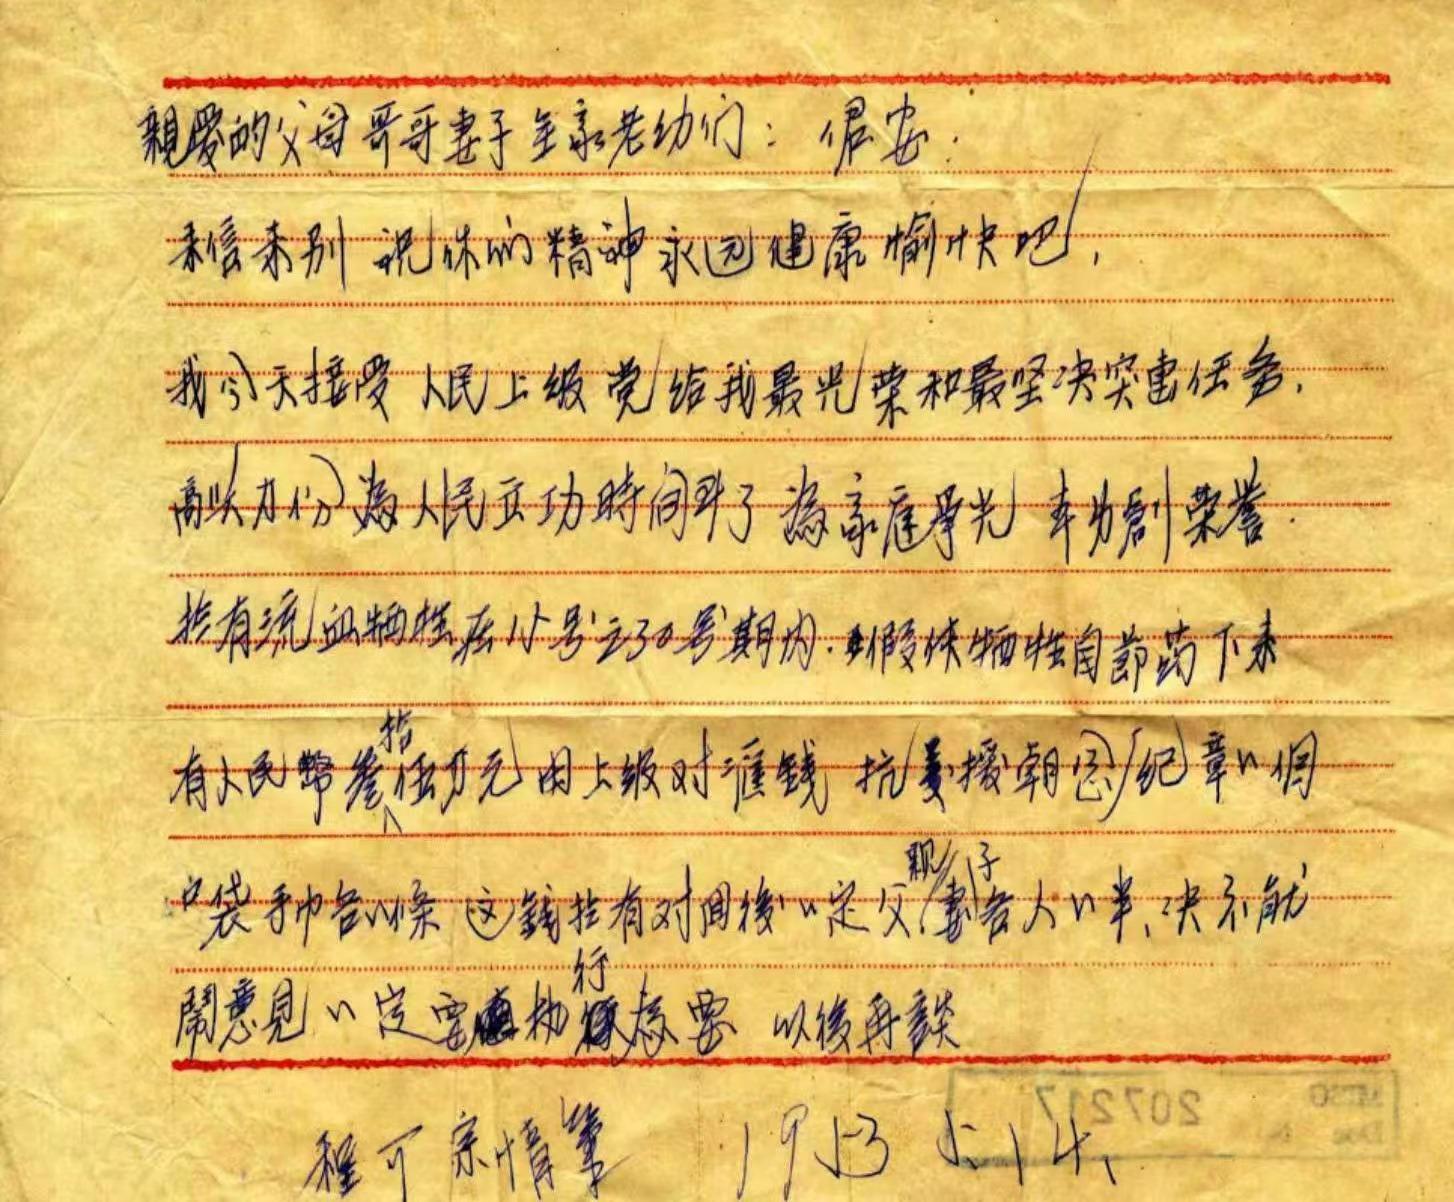 親愛的父母哥哥妻子全家老幼们：君安.
来信未别 祝你们精神永远健康愉快吧，
我今天接受 人民上级党给我最光荣和最坚决突击任务，
高以力份 為人民立功時间到了 為家庭爭光 本身創荣誉.
拾有流血牺牲在15号之30号期内.假使牺牲自節药下来
有人民幣叁拾伍万元 由上级对滙錢 抗美援朝 纪章一個
口袋手巾各一條 这錢拾有对间後一定父親妻子各人一半，决不能
鬧意見 一定要 执行為要 以後再談
程可宗情筆 1953 5.14.
207217